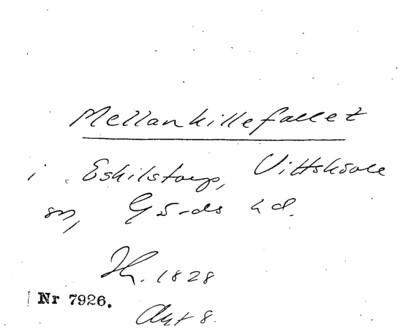 Mellankillefallet
i Eskilstorp, Vittskövle
sn, Gärds hd.
Jh. 1828
Nr 7926.
Akt 8.